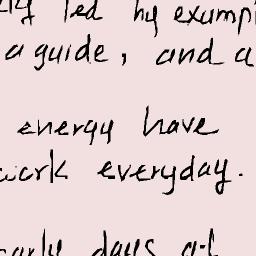 led by exampl
a guide, and a
energy have
work everyday.
early days at